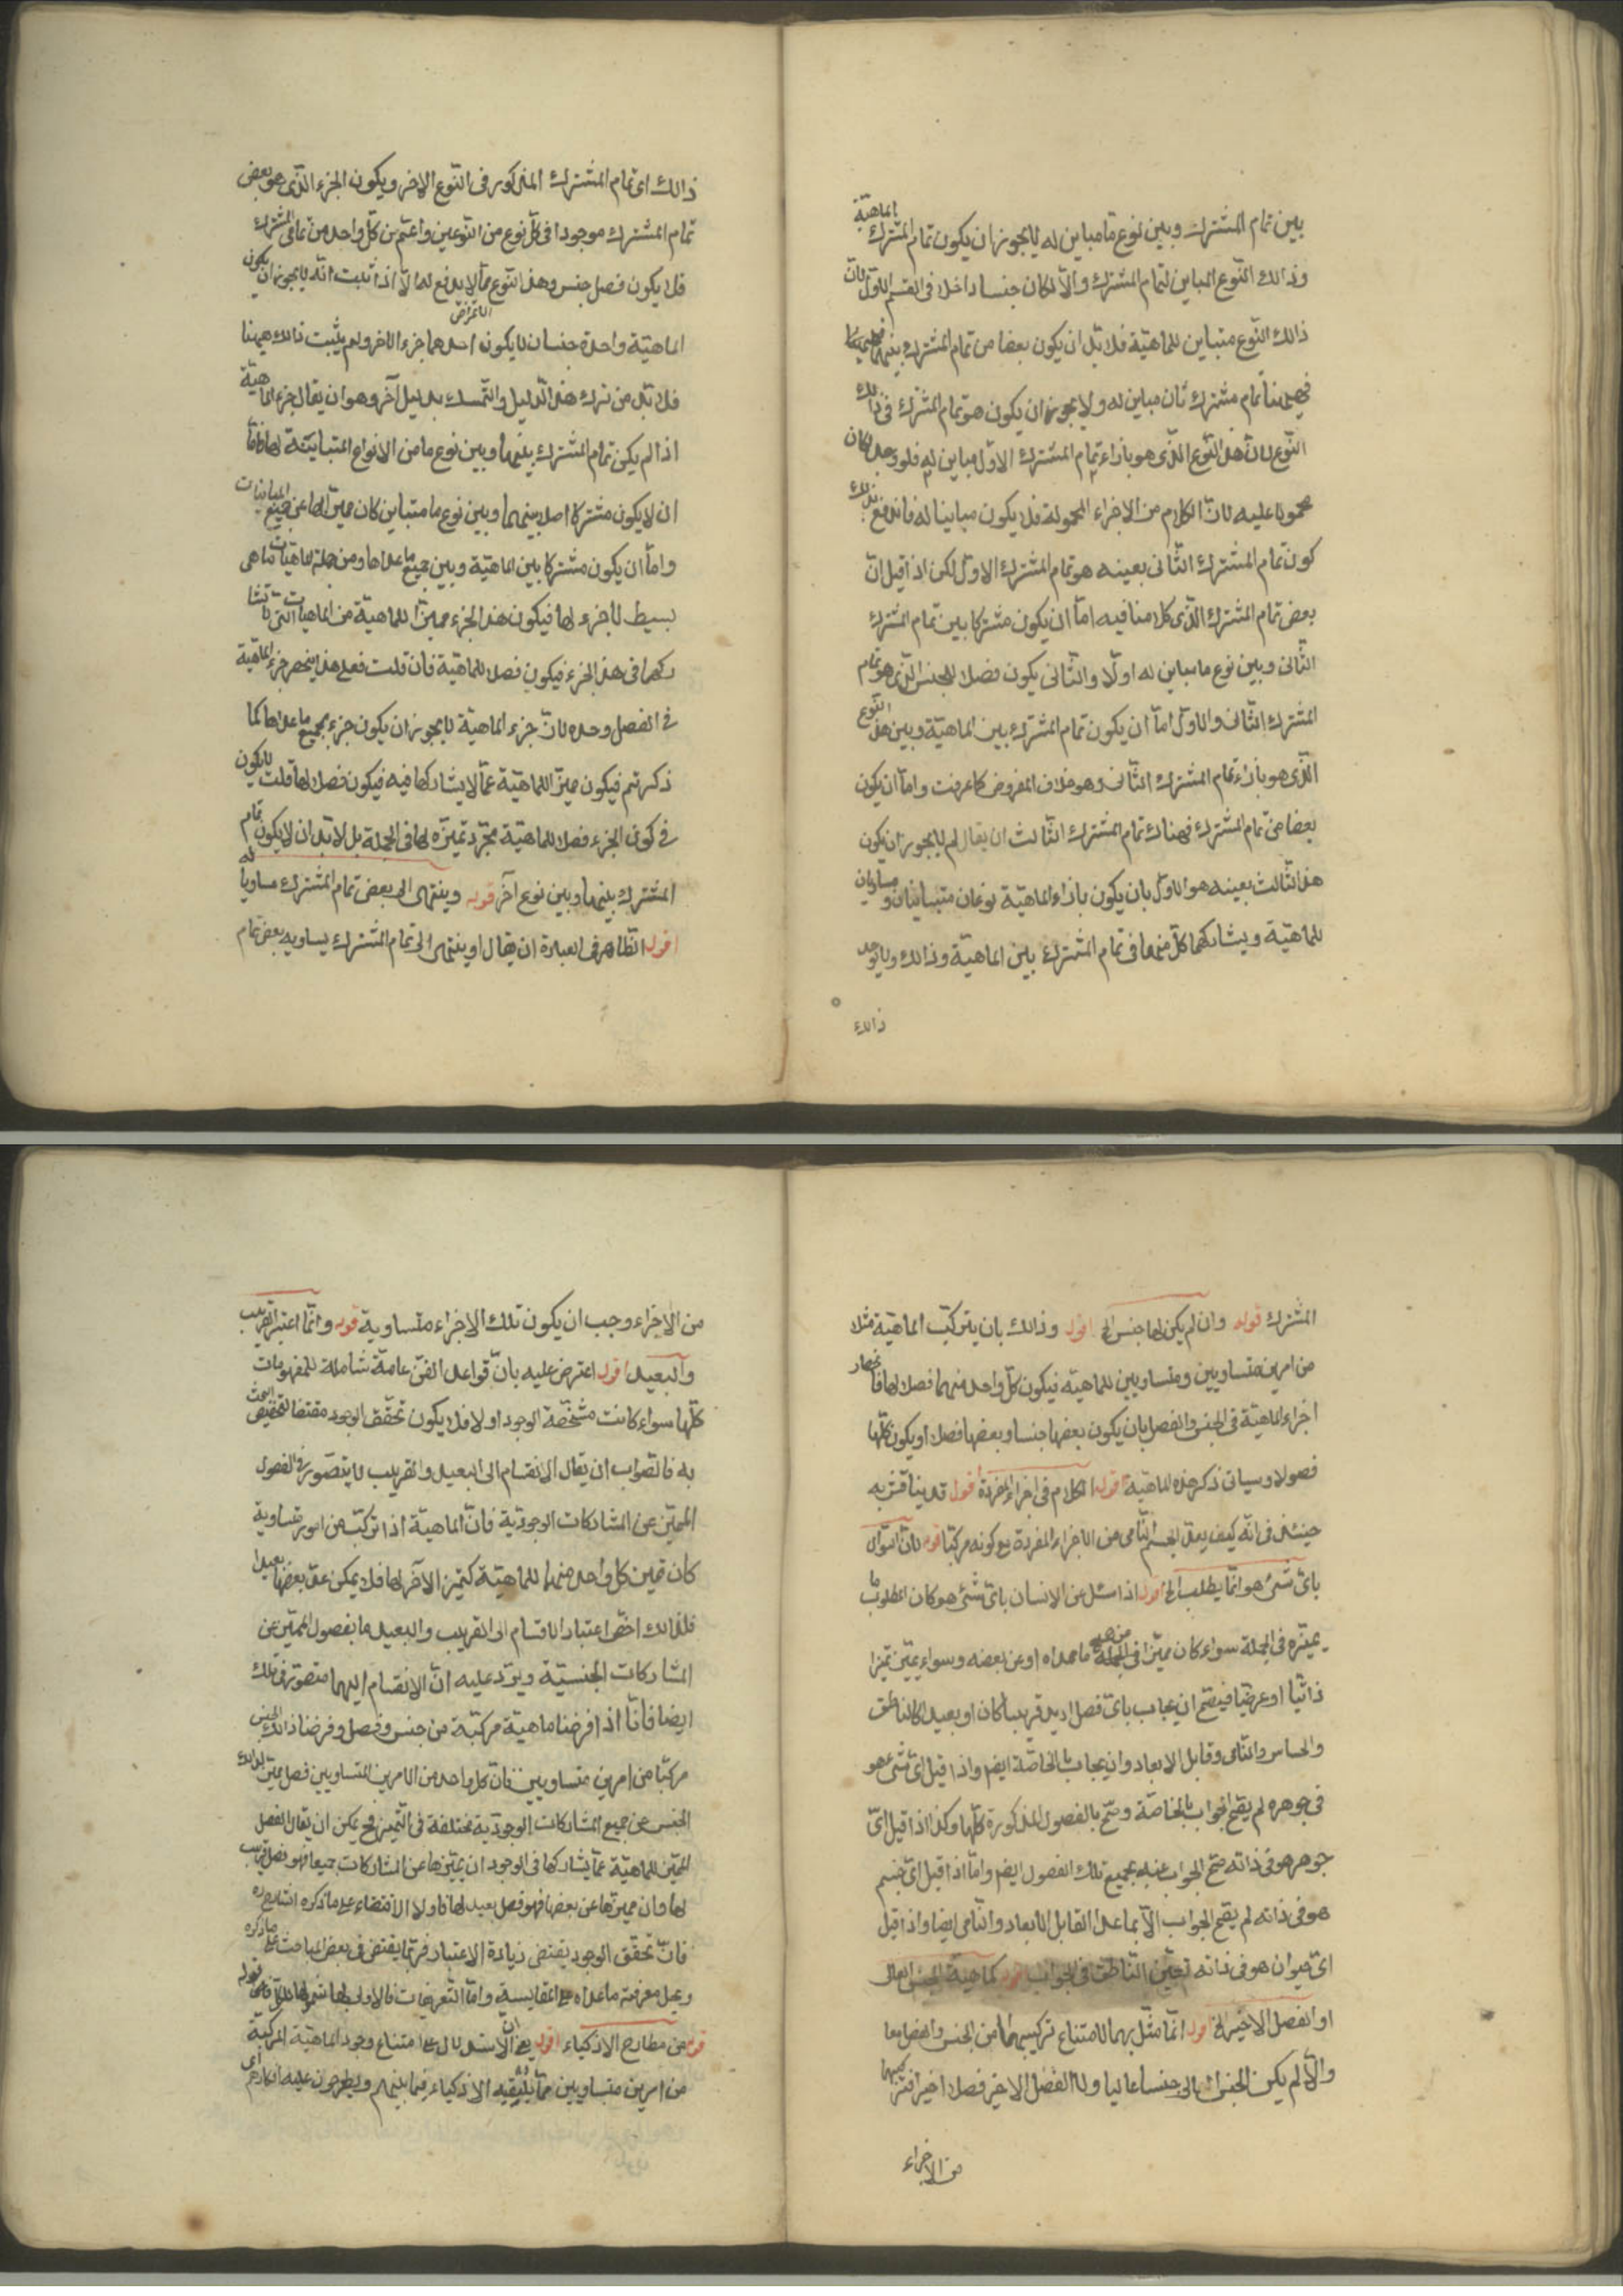 بين تمام المشترك وبين نوع ما مباين له لا يجوز ان يكون تمام المشترك الماهية
وذالك النوع المباين لتمام المشترك والا لكان جنسا داخلا فى القسم الاول لان
ذالك النوع متباين للماهية فلا بد ان يكون بعضا من تمام المشترك بينهما
فيهنا تمام مشترك ثان مباين له ولا يجوز ان يكون هو تمام المشترك فى ذالك
النوع لان هذا النوع الذى هو بازاء تمام المشترك الاول مباين له فلو وجد لكان
محمولا عليه لان الكلام من الاجزاء المحمولة فلا يكون مباينا له فاندفع بذلك
كون تمام المشترك الثانى بعينه هو تمام المشترك الاول لكن اذا قيل ان
بعض تمام المشترك الذى كلامنا فيه اما ان يكون مشتركا بين تمام المشترك
الثانى وبين نوع ما مباين له اولا والثانى يكون فصلا للجنس الذى هو تمام
المشترك الثانى والاول اما ان يكون تمام المشترك بين الماهية وبين هذا النوع
الذى هو بازاء تمام المشترك الثانى وهو خلاف المفروض كما عرفت واما ان يكون
بعضا من تمام المشترك فهناك تمام المشترك الثالث ان يقال لم لا يجوز ان يكون
هذا الثالث بعينه هو الاول بان يكون بازاء الماهية نوعان متباينان ومساويان
للماهية ويشاركهما كل منهما فى تمام المشترك بين الماهية وذالك ولا يوجد
ذالك
ذالك اى تمام المشترك المذكور فى النوع الاخر ويكون الجزء الذى هو بعض
تمام المشترك موجودا فى كل نوع من النوعين واعم من كل واحد من تمامى المشترك
فلا يكون فصل جنس وهذا النوع مما لا يدفع له الا اذا ثبت انه لا يجوز ان يكون
الاعتراض
الماهية واحدة جنسان لا يكون احدهما جزء الاخر ولم يثبت ذالك هيهنا
فلا بد من ترك هذا الدليل والتمسك بدليل آخر وهو ان يقال جزء الماهية
اذا لم يكن تمام المشترك بينهما وبين نوع ما من الانواع المتباينة لها فاما
ان لا يكون مشتركا اصلا بينهما وبين نوع ما متباين كان مميزا لها عن جميع المباينات
واما ان يكون مشتركا بين الماهية وبين جميع ما عداها ومن جملة الماهيات ما هى
بسيط لا جزء لها فيكون هذا الجزء مميزا للماهية من الماهيات التى لا تشا
ركها فى هذا الجزء فيكون فصلا للماهية فان قلت فعلى هذا ينحصر جزء الماهية
فى الفصل وحده لان جزء الماهية لا يجوز ان يكون جزء بجميع ما عداها كما
ذكرتم فيكون مميزا للماهية عما لا يشاركها فيه فيكون فصلا لها قلت لا يكون
فى كون الجزء فصلا للماهية مجرد تميزه لها فى الجملة بل لا بد ان لا يكون تمام
المشترك بينهما وبين نوع آخر قوله وينتهى الى بعض تمام المشترك مساويا له
اقول الظاهر فى العبارة ان يقال او ينتهى الى تمام المشترك يساويه بعض تمام
المشترك قوله وان لم يكن لها جنس الخ اقول وذالك بان يتركب الماهية مثلا
من امرين متساويين ومتساويين للماهية فيكون كل واحد منهما فصلا لها فانحصار
اجزاء الماهية فى الجنس والفصل بان يكون بعضها جنسا وبعضها فصلا او يكون كلها
فصولا وسياتى ذكر هذه الماهية قوله الكلام فى اجزاء المفردة اقول قد يناقش به
حينئذ فى انه كيف يعد الجسم النامى من الاجزاء المفردة مع كونه مركبا قوله لان السؤال
باى شئ هو انما يطلب الخ اقول اذا سئل عن الانسان باى شئ هو كان المطلوب ما
يميزه فى الجملة سواء كان مميزا عن جميع ما عداه او عن بعضه وسواء يميزه تميزا
ذاتيا او عرضيا فيصح ان يجاب باى فصل اريد قريبا كان او بعيدا كالناطق
والحساس والنامى وقابل الابعاد وان يجاب بالخاصة ايضا واذا قيل اى شئ هو
فى جوهره لم يقع الجواب بالخاصة وصح بالفصول المذكورة كلها وكذا اذا قيل اى
جوهر هو فى ذاته صح الجواب عنه بجميع تلك الفصول ايضا واما اذا قيل اى جسم
هو فى ذاته لم يقع الجواب الا بما عدا القابل الابعاد والنامى ايضا واذا قيل
اى حيوان هو فى ذاته تعين الناطق فى الجواب قوله كماهية الجنس العالى
او الفصل الاخير الخ اقول انما مثل بهما لامتناع تركيبهما من الجنس والفصل معا
والا لم يكن الجنس العالى جنسا عاليا ولا الفصل الاخير فصلا اخيرا فتركبهما
من الاجزاء
من الاجزاء وجب ان يكون تلك الاجزاء متساوية قوله وانما اعتبر القريب
والبعيد اقول اعترض عليه بان قواعد الفن عامة شاملة للمفهومات
كلها سواء كانت مشخصة الوجود او لا فلا يكون تحقق الوجود مقتضا لتخصيص البحث
به فالصواب ان يقال الانقسام الى البعيد والقريب لا يتصور فى الفصول
المميز عن المشاركات الوجودية فان الماهية اذا تركبت من امور متساوية
كان تميز كل واحد منهما للماهية كتميز الآخر لها فلا يمكن عد بعضها بعيدا
فلذالك اختص اعتبار الاقسام الى القريب والبعيد ما بفصول المميز عن
المشاركات الجنسية ويرد عليه ان الانقسام اليهما متصور فى تلك
ايضا فانا اذا فرضنا ماهية مركبة من جنس وفصل وفرضنا ذالك الجنس
مركبا من امرين متساويين فان كل واحد من الامرين المتساويين فصل مميز لذالك
الجنس عن جميع المشاركات الوجودية مختلفة فى التميز فح يمكن ان يقال الفصل
المميز للماهية عما يشاركها فى الوجود ان يميزها عن المشاركات جميعا فهو فصل قريب
لها وان ميزها عن بعضها فهو فصل بعيد لها فاولا الاقتضاء على ما ذكره الشارح ره
فان تحقق الوجود يقتضى زيادة الاعتبار فربما يقتضى فى بعض المباحث على ما ذكره
ويحل معرفة ما عداه على المقايسة واما التعريفات فالاولى لها
قوله من مطارح الاذكياء اقول يعنى ان الاستدلال على امتناع وجود الماهية المركبة
من امرين متساويين مما يلقيه الاذكياء فيما بينهم ويطرحون عليه افكارهم